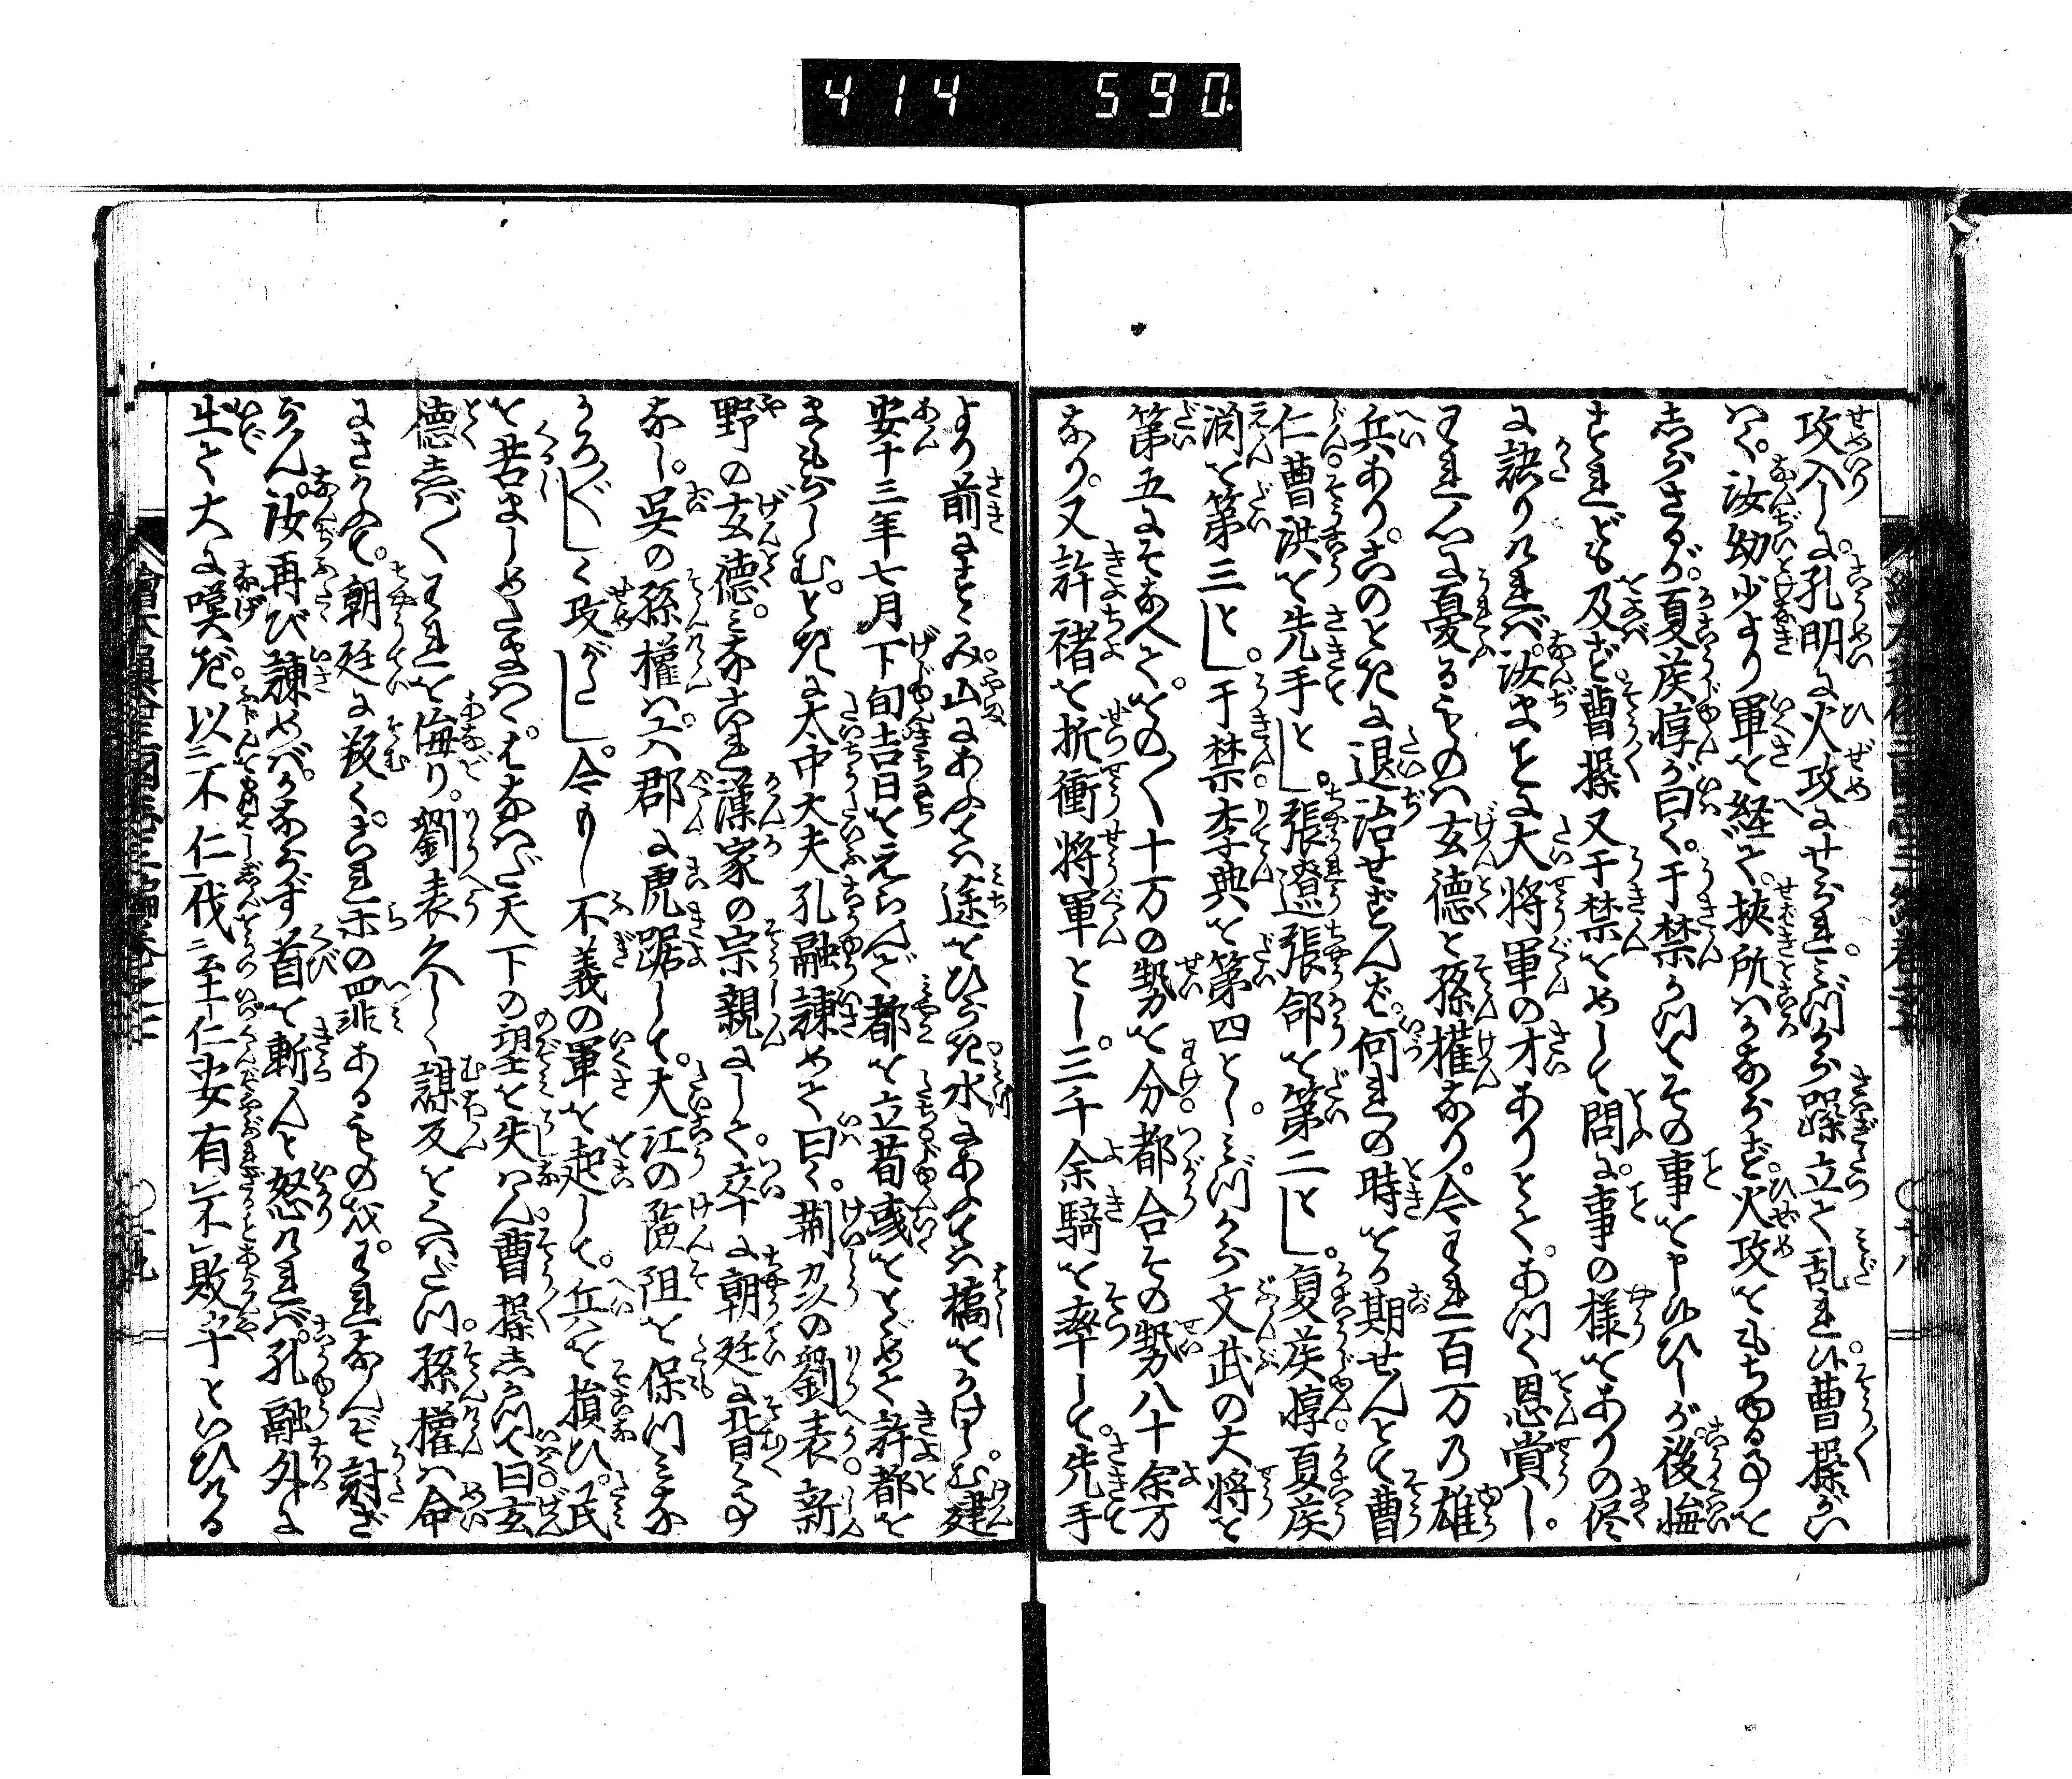 414 590
攻入しに。孔明に火攻にせられ。みづから躁立て乱れ候。曹操がい
はく。汝幼少より軍を経て。狭所はかならず。火攻をもちゆる事を
しらざるか。夏侯惇が曰く。于禁かつてその事を申候ひしが。後悔
すれども及ばず。曹操又于禁をめして問に。事の様をありの侭
に語りければ。汝まことに大将軍の才ありとて。あつく恩賞し。
われ心に憂るものは玄徳と孫権なり。今われ百万の雄
兵あり。このときに退治せずんば。何れの時をか期せんとて曹
仁曹洪を先手とし。張遼張郃を第二とし。夏侯惇夏侯
淵を第三とし。于禁李典を第四とし。みづから文武の大将を
第五にそなへて。をの〳〵十万の勢を分都合その勢八十余万
なり。又許褚を折衝将軍とし。三千余騎を率して。先手
より前にすゝみ。山にあふては途をひらき。水にあふては橋をかけしむ。建
安十三年七月下旬吉日をえらんで都を立荀彧をとゞめて許都を
まもらしむ。ときに太中大夫孔融諫めて曰く。荆州の劉表新
野の玄徳。みなこれ漢家の宗親にして。卒に朝廷に背く事
なし。呉の孫權は。六郡に虎踞して。大江の險阻を保つみな
かろ〴〵しく攻がたし。今もし不義の軍を起して。兵を損ひ。民
を苦ましめたまはゞ。をなはだ天下の望を失はん曹操しかつて曰玄
徳しば〳〵われを侮り。劉表久しく謀反をくはだつ。孫權は命
にさかふて。朝廷に叛く。これ尓の罪あるものは。われなんぞ討ざ
らん。汝再び諫めば。かならず首を斬んと怒りければ。孔融外に
出て大に嘆じ。以不仁伐至仁安有不敗乎といひける